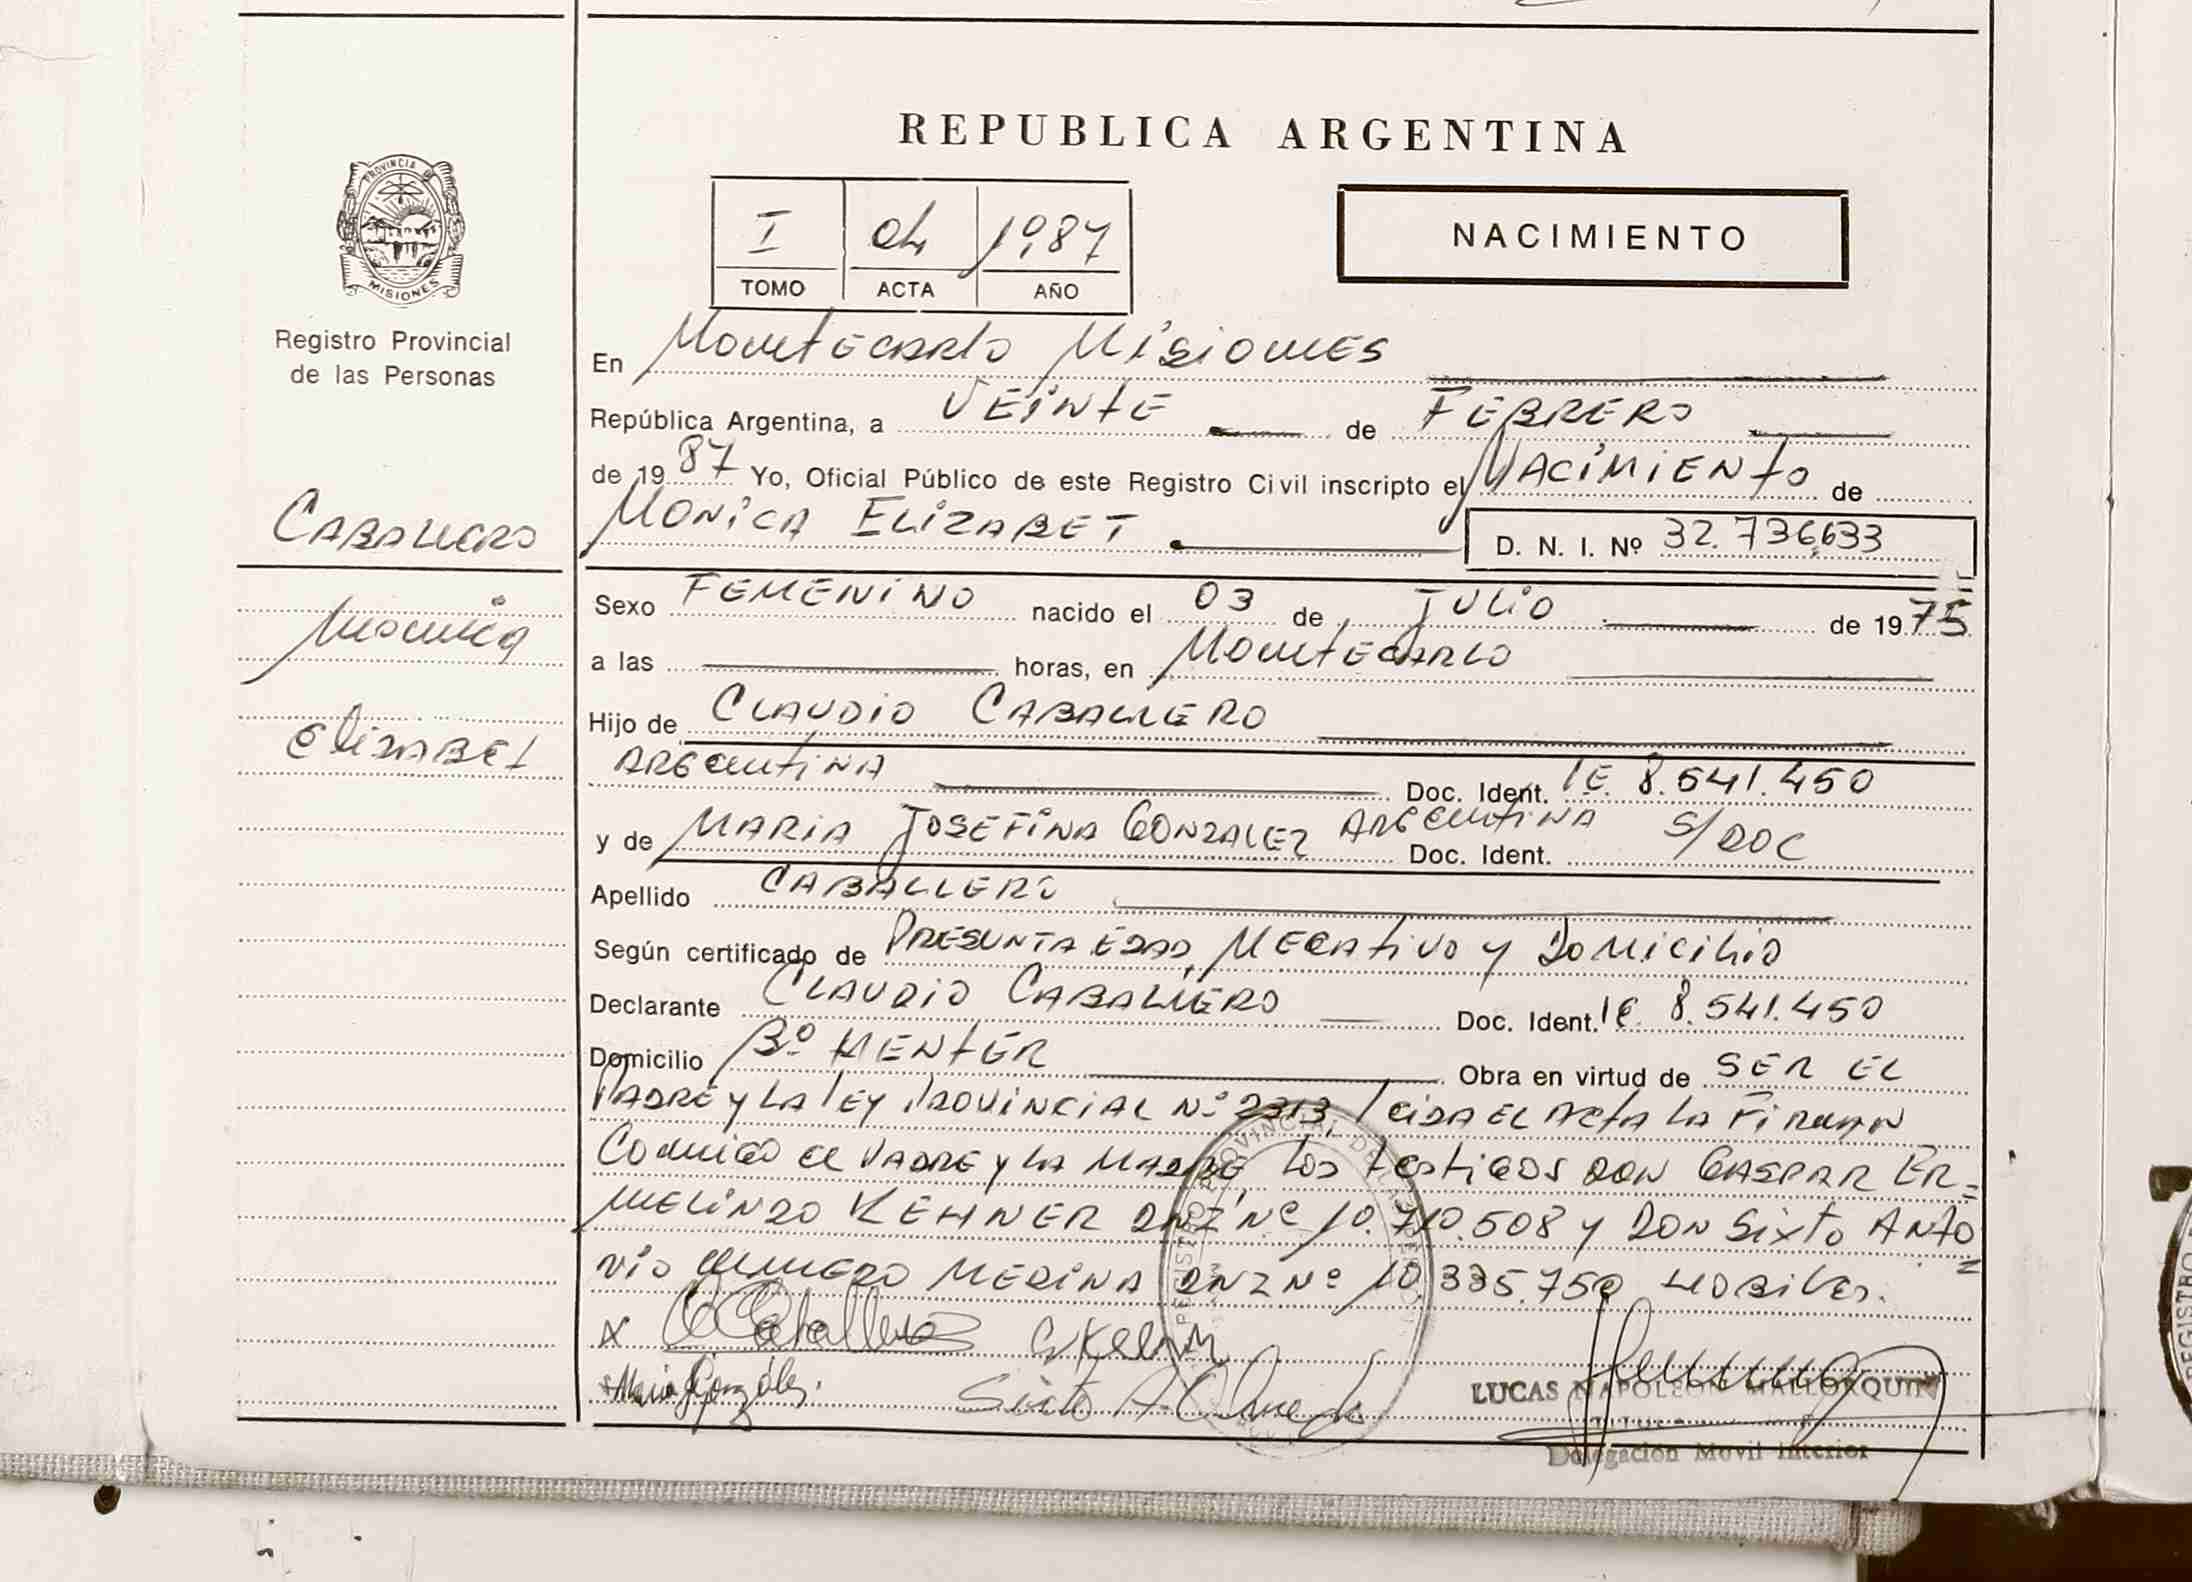 REPUBLICA ARGENTINA
PROVINCIA DE
MISIONES
Registro Provincial
de las Personas
I 04 1987
TOMO ACTA AÑO
NACIMIENTO
En Montecarlo Misiones
República Argentina, a VEINTE de FEBRERO
de 1987 Yo, Oficial Público de este Registro Civil inscripto el NACIMIENTO de
CABALLERO
MONICA ELIZABET D. N. I. Nº 32.736.633
Monica
Elizabet
Sexo FEMENINO nacido el 03 de JULIO de 1975
a las horas, en Montecarlo
Hijo de CLAUDIO CABALLERO
ARGENTINA Doc. Ident. LE 8.541.450
y de MARIA JOSEFINA GONZALEZ ARGENTINA Doc. Ident. S/DOC
Apellido CABALLERO
Según certificado de PRESUNTA EDAD, NEGATIVO Y DOMICILIO
Declarante CLAUDIO CABALLERO Doc. Ident. LE 8.541.450
Domicilio Bº Obra en virtud de SER EL
PADRE Y LA LEY PROVINCIAL Nº 2313, LEIDA EL ACTA LA FIRMAN
CONMIGO EL PADRE Y LA MADRE, LOS TESTIGOS DON GASPAR ER=
MELINDO KEHNER DNI Nº 10.710.508 Y DON SIXTO ANTO=
NIO MEDINA DNI Nº 10.335.750 HABILES.
X C Caballero G Kehner
Maria J González. Sixto A
LUCAS NAPOLEON MALLORQUIN
Delegacion Movil Interior
REGISTRO PROVINCIAL DE LAS PERSONAS